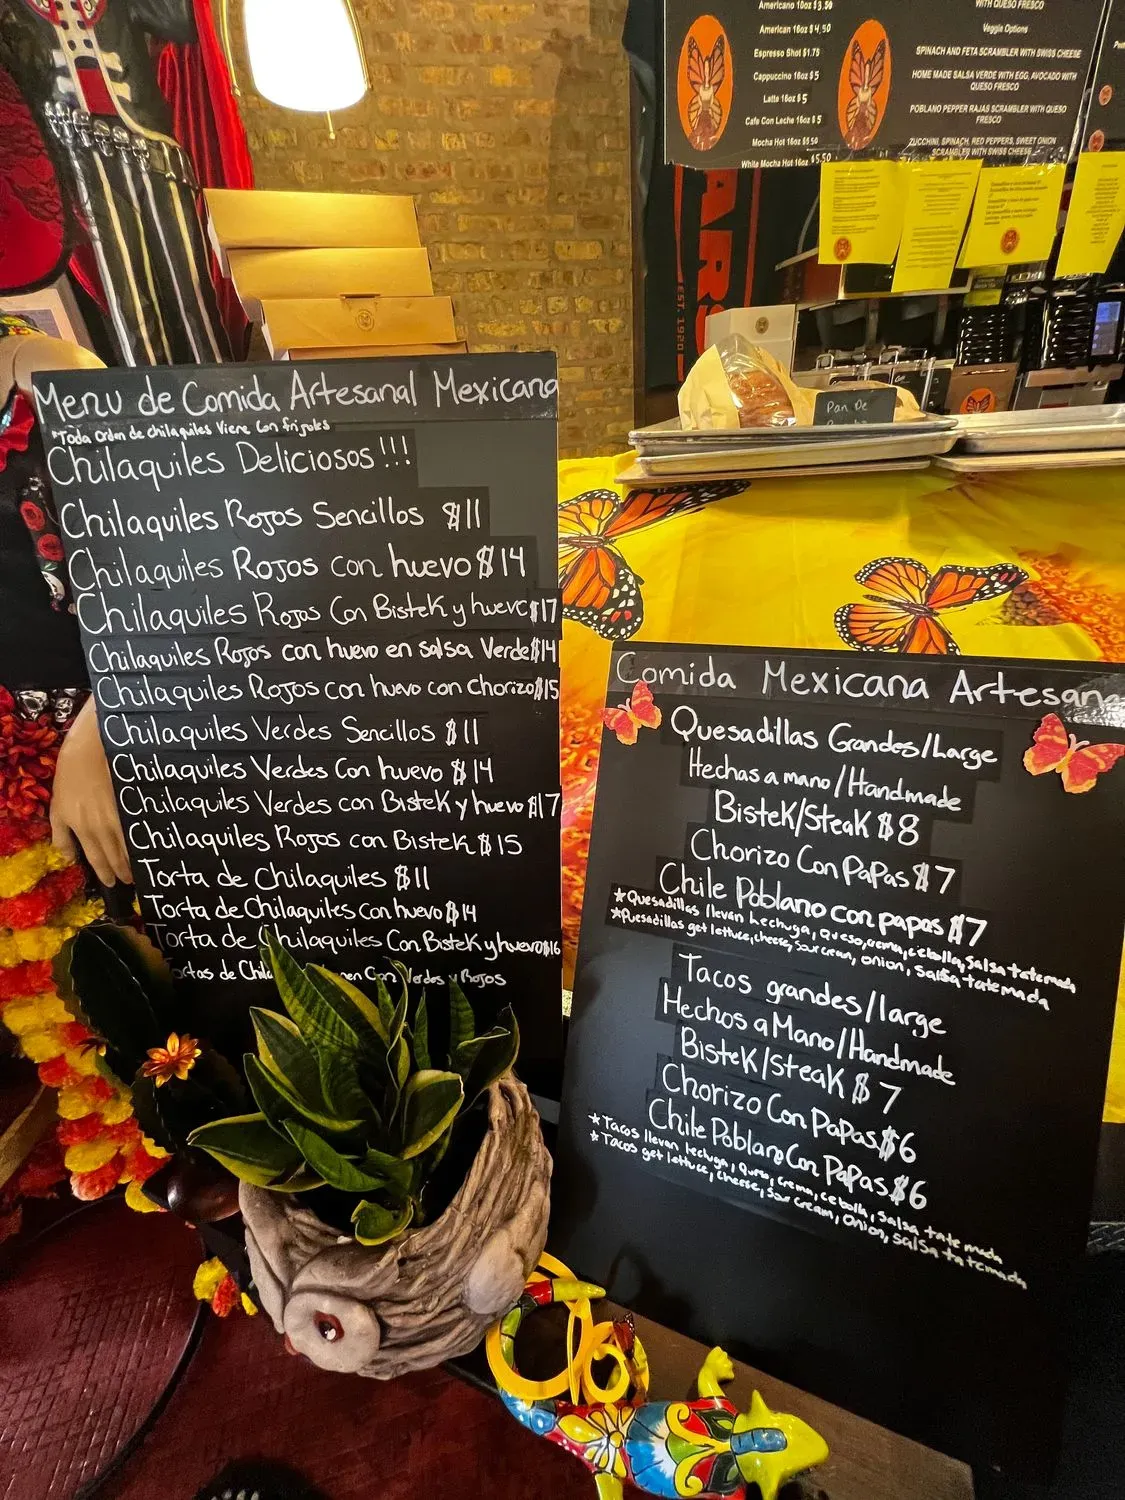 Menu de Comida Artesanal Mexicana
*Toda orden de chilaquiles Viene Con frijoles
Chilaquiles Deliciosos!!!
Chilaquiles Rojos Sencillos $11
Chilaquiles Rojos con huevo $14
Chilaquiles Rojos Con Bistek y huevo $17
Chilaquiles Rojos con huevo en salsa Verde $14
Chilaquiles Rojos con huevo con Chorizo $15
Chilaquiles Verdes Sencillos $11
Chilaquiles Verdes Con huevo $14
Chilaquiles Verdes con Bistek y huevo $17
Chilaquiles Rojos con Bistek $15
Torta de Chilaquiles $11
Torta de Chilaquiles Con huevo $14
Torta de Chilaquiles Con Bistek y huevo $16
Tortas de Con Verdes y Rojos
Comida Mexicana Artesan
Quesadillas Grandes/Large
Hechas a mano/Handmade
Bistek/Steak $8
Chorizo Con Papas $7
Chile Poblano con papas $7
*Quesadillas llevan lechuga, queso, crema, cebolla, Salsa tatemada
*Quesadillas get lettuce, cheese, sour cream, onion, salsa tatemada
Tacos grandes/large
Hechos a Mano/Handmade
Bistek/Steak $7
Chorizo Con Papas $6
Chile Poblano Con Papas $6
*Tacos llevan lechuga, queso, crema, cebolla, Salsa tatemada
*Tacos get lettuce, cheese, sour cream, onion, salsa tatemada
Americano 10oz $3.50
American 16oz $4.50
Espresso Shot $1.75
Cappuccino 16oz $5
Latte 16oz $5
Cafe Con Leche 16oz $5
Mocha Hot 16oz $5.50
White Mocha Hot 16oz $5.50
WITH QUESO FRESCO
Veggie Options
SPINACH AND FETA SCRAMBLER WITH SWISS CHEESE
HOME MADE SALSA VERDE WITH EGG, AVOCADO WITH
QUESO FRESCO
POBLANO PEPPER RAJAS SCRAMBLER WITH QUESO
FRESCO
ZUCCHINI, SPINACH, RED PEPPERS, SWEET ONION
SCRAMBLED WITH SWISS CHEESE
EST. 1920
Pan De